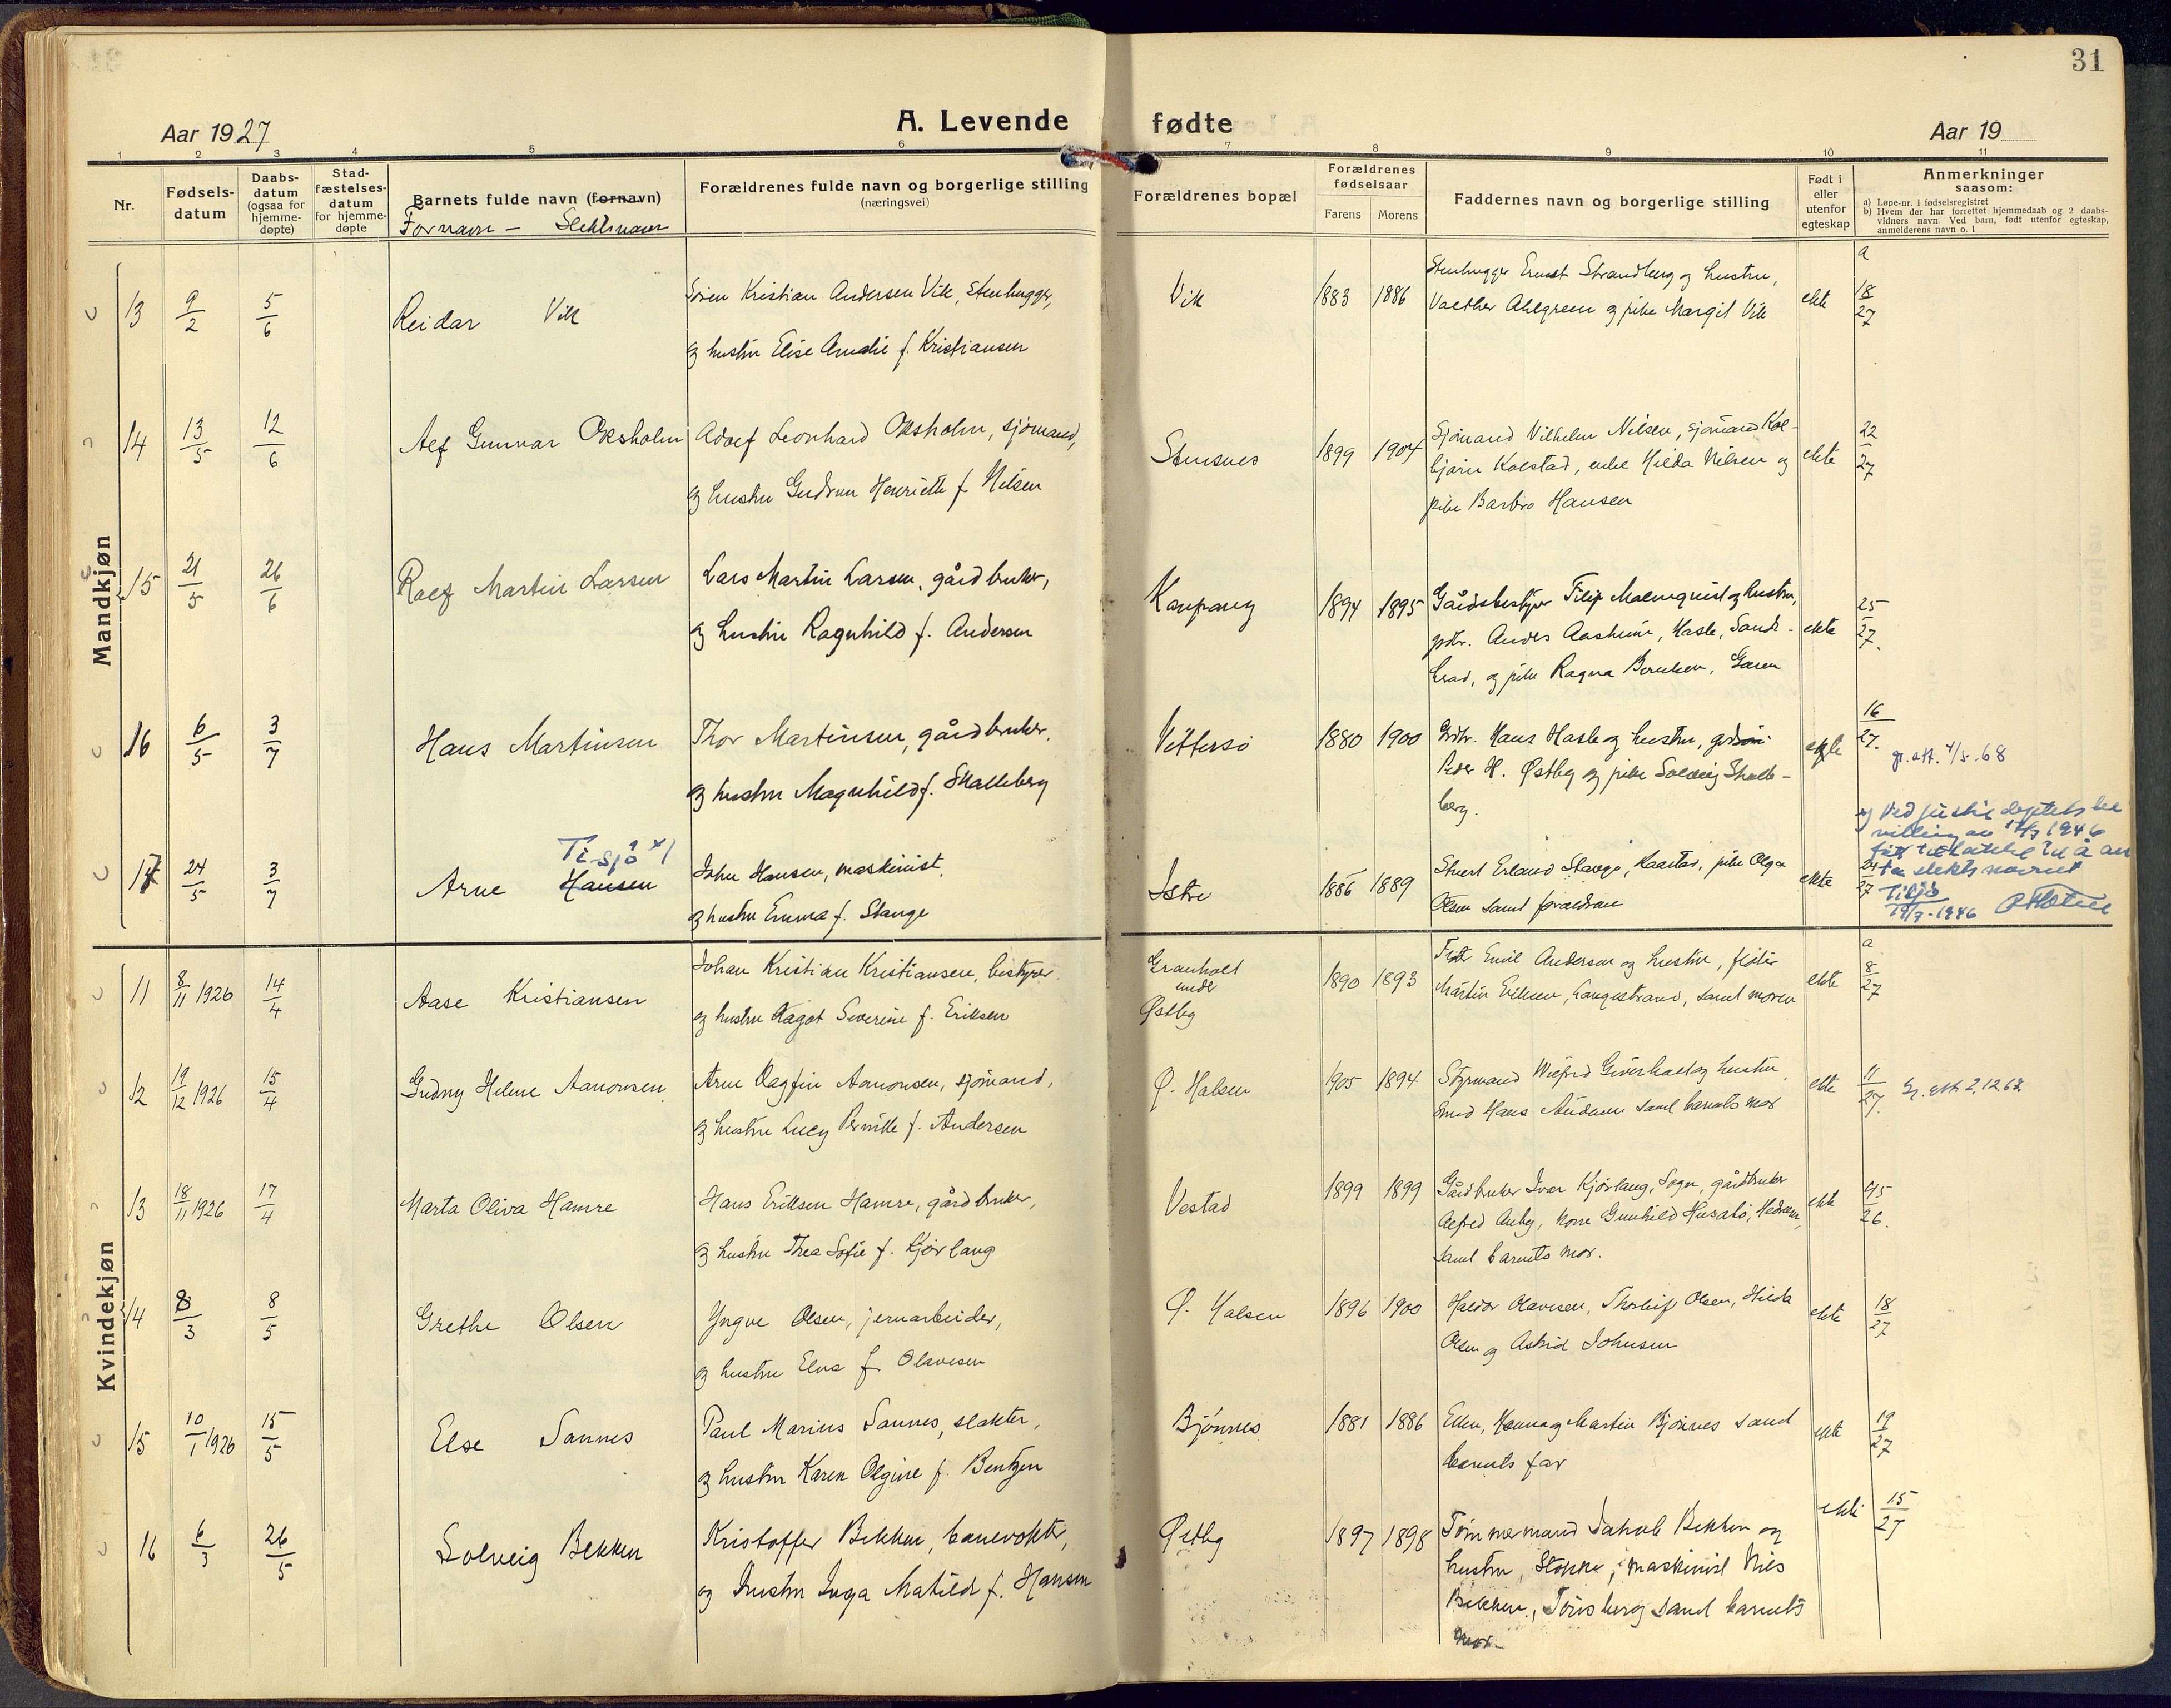 31
Aar 1927
A. Levende fødte
Aar 19
1 2 3 4 5 6 7 8 9 10 11
Nr.
Fødsels-
datum
Daabs-
datum
(ogsaa for
hjemme-
døpte)
Stad-
fæstelses-
datum
for hjemme-
døpte
Barnets fulde navn (fornavn)
Fornavn — Slektsnavn
Forældrenes fulde navn og borgerlige stilling
(næringsvei)
Forældrenes bopæl
Forældrenes
fødselsaar
Farens Morens
Faddernes navn og borgerlige stilling
Født i
eller
utenfor
egteskap
Anmerkninger
saasom:
a) Løpe-nr. i fødselsregistret
b) Hvem der har forrettet hjemmedaab og 2 daabs-
vidners navn. Ved barn, født utenfor egteskap,
anmelderens navn o. l
Mandkjøn
13 9/2 5/6 Reidar Vik
Søren Kristian Andersen Vik, Stenhugger,
og hustru Elise Amalie f. Kristiansen
Vik 1883 1886
Stenhugger Ernst Strandberg og hustru,
Valther Ahlgreen og pike Margit Vik
ekte
a 18/27
14 13/5 12/6 Alf Gunnar Oksholm
Adolf Leonhard Oksholm, sjømand,
og hustru Gudrun Henriette f. Nilsen
Stensnes 1899 1904
Sjømand Vilhelm Nilsen, sjømand Kol-
bjørn Kolstad, enke Hilda Nilsen og
pike Barbro Hansen
ekte 22/27
15 21/5 26/6 Rolf Martin Larsen
Lars Martin Larsen, gårdbruker,
og hustru Ragnhild f. Andersen
Kaupang 1894 1895
Gårdsbestyrer Filip Malmquist og hustru,
gdbr. Anders Aasheim, Hasle, Sande-
herad, og pike Ragna Berntsen, Gåren
ekte 25/27.
16 6/5 3/7 Hans Martinsen
Thor Martinsen, gårdbruker,
og hustru Magnhild f. Skalleberg
Vittersø 1880 1900
Grdbr. Hans Hasle og hustru, grdsøn
Peder H. Østby og pike Solveig Skalle-
berg.
ekte 16/27. gr. att. 4/5.68
17 24/5 3/7 Arne Hansen
Tisjø x)
John Hansen, maskinist,
og hustru Emma f. Stange
Istre 1886 1889
Stuert Erland Stange, Kaastad, pike Olga
Olsen samt forældrene
ekte 24/27
x) Ved justisdeptets be
villing av 17/7 1946
fått tillatelse til å an
ta slektsnavnet
Tisjø
19/7-1946
Kvindekjøn
11 8/11 1926 14/4 Aase Kristiansen
Johan Kristian Kristiansen, bestyrer
og hustru Dagot Severine f. Eriksen
Granholt
under
Østby
1890 1893
Emil Anderson og hustru, fisker
Martin Eriksen, Langestrand, samt moren
ekte
a 8/27
12 19/12 1926 15/4 Gudny Helene Aanonsen
Arne Dagfin Aanonsen, sjømand,
og hustru Lucy Pernille f. Andersen
Ø. Halsen 1905 1894
Styrmand Wilfred Giverholt og hustru,
smed Hans Andersen samt barnets mor
ekte 11/27. gr. att. 2.12 68.
13 18/11 1926 17/4 Marta Oliva Hamre
Hans Eriksen Hamre, gårdbruker,
og hustru Thea Sofie f. Kjørlaug
Vestad 1899 1899
Gårdbruker Ivar Kjørlaug, Sogn, gårdbruker
Alfred Auby, kone Gunhild Husabø, Hedrum,
samt barnets mor.
ekte 45/26.
14 8/3 8/5 Grethe Olsen
Yngve Olsen, jernarbeider,
og hustru Elna f. Olavesen
Ø. Halsen 1896 1900
Haldor Olavesen, Thorleif Olsen, Hilda
Olsen og Astrid Johnsen
ekte 18/27
15 10/1 1926 15/5 Else Sannes
Paul Marius Sannes, slakter,
og hustru Karen Olgine f. Bentzen
Bjønnes 1881 1886
Ellen, Hanna og Martin Bjønnes samt
barnets far
ekte 19/27
16 6/3 26/5 Solveig Bekken
Kristoffer Bekken, banevokter,
og hustru Inga Matilde f. Hansen
Østby 1897 1898
Tømmermand Jakob Bekken og
hustru, Stokke, maskinist Nils
Bekken, Tønsberg samt barnets
mor.
ekte 15/27